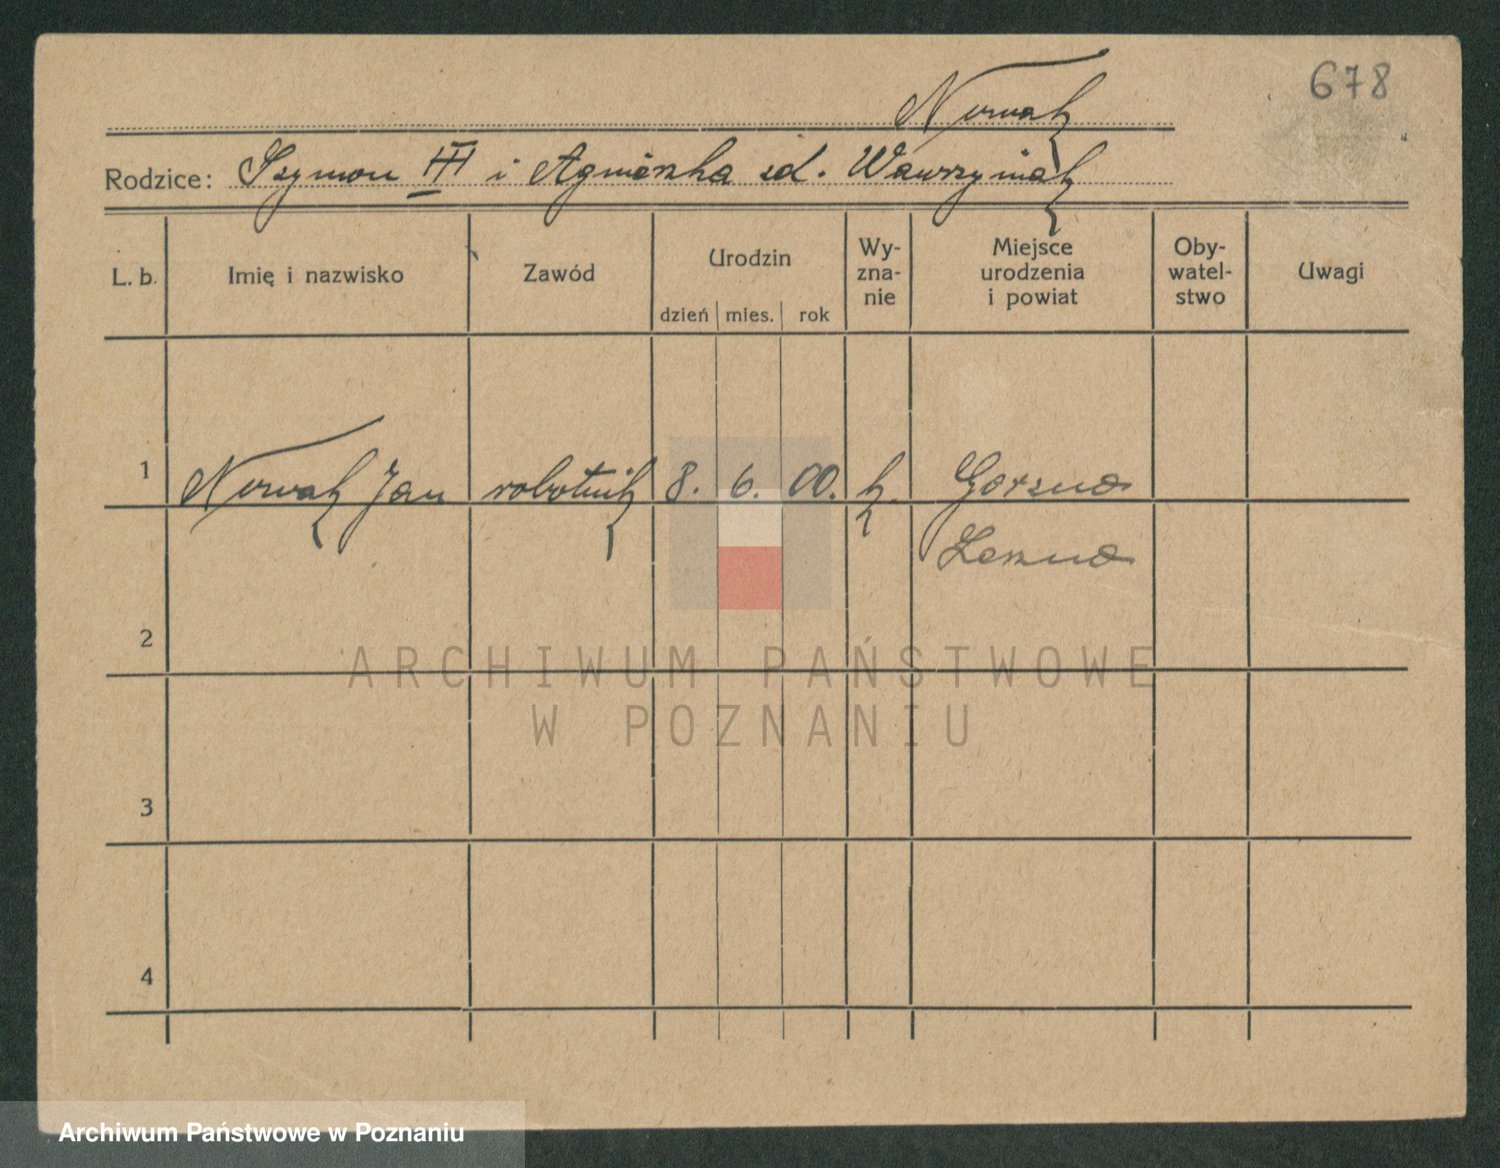 678
Nowak
Rodzice: Szymon III i Agnieszka zd. Wawrzyniak
L. b. Imię i nazwisko Zawód Urodzin Wy-zna-nie Miejsce urodzenia i powiat Oby-watel-stwo Uwagi
dzień mies. rok
1 Nowak Jan robotnik 8. 6. 00. k. Gorzno
Leszno
2
ARCHIWUM PAŃSTWOWE
W POZNANIU
3
4
Archiwum Państwowe w Poznaniu